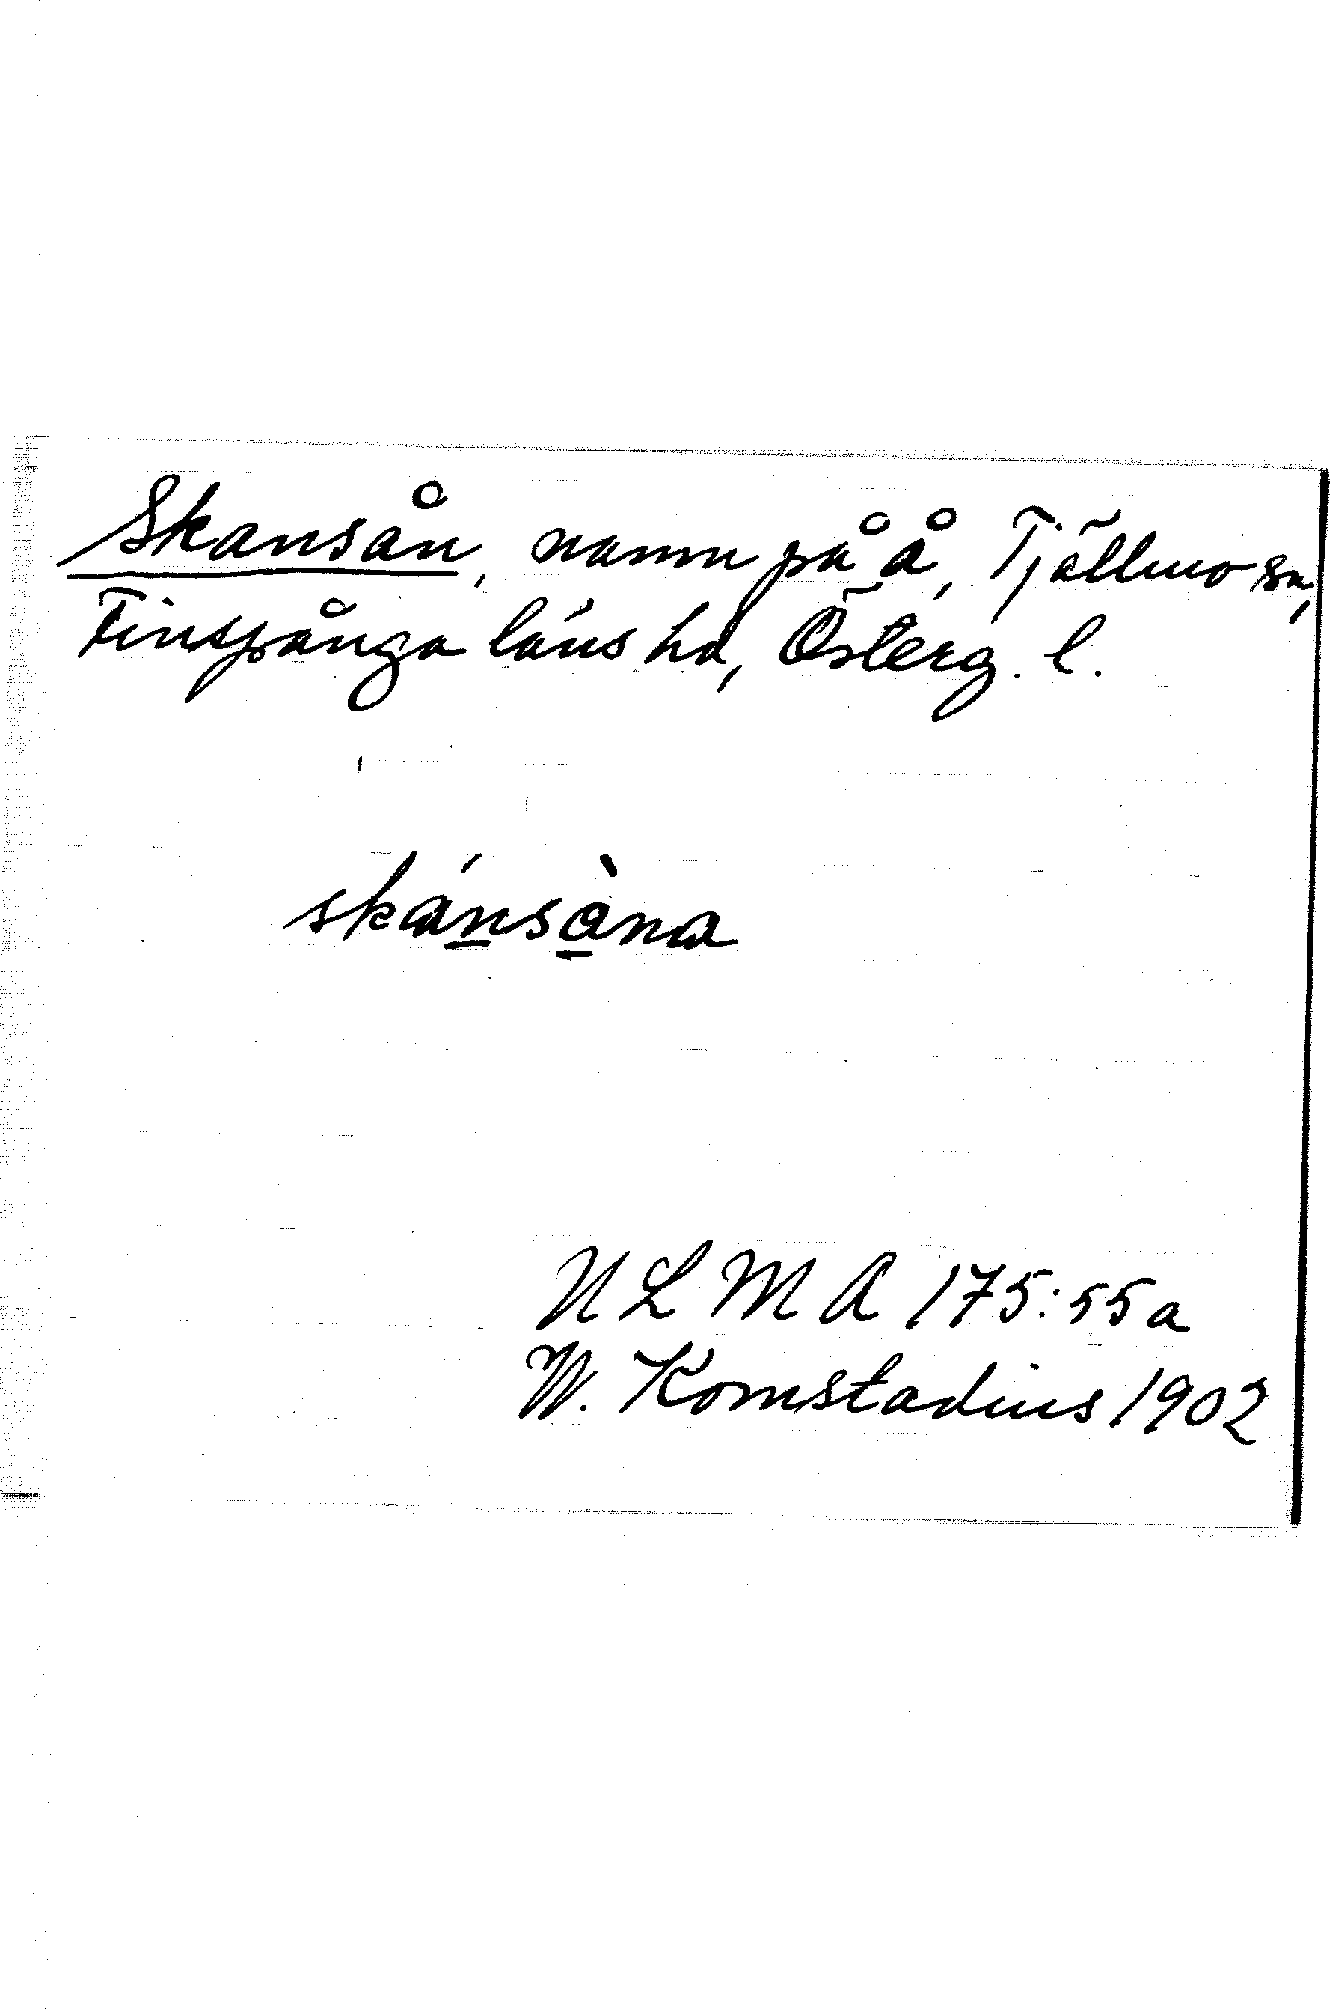 Skansån, namn på å, Tjällmo sn,
Finspånga läns hd, Österg. l.
skánsàna
U L M A 175:55a
W. Komstadius 1902